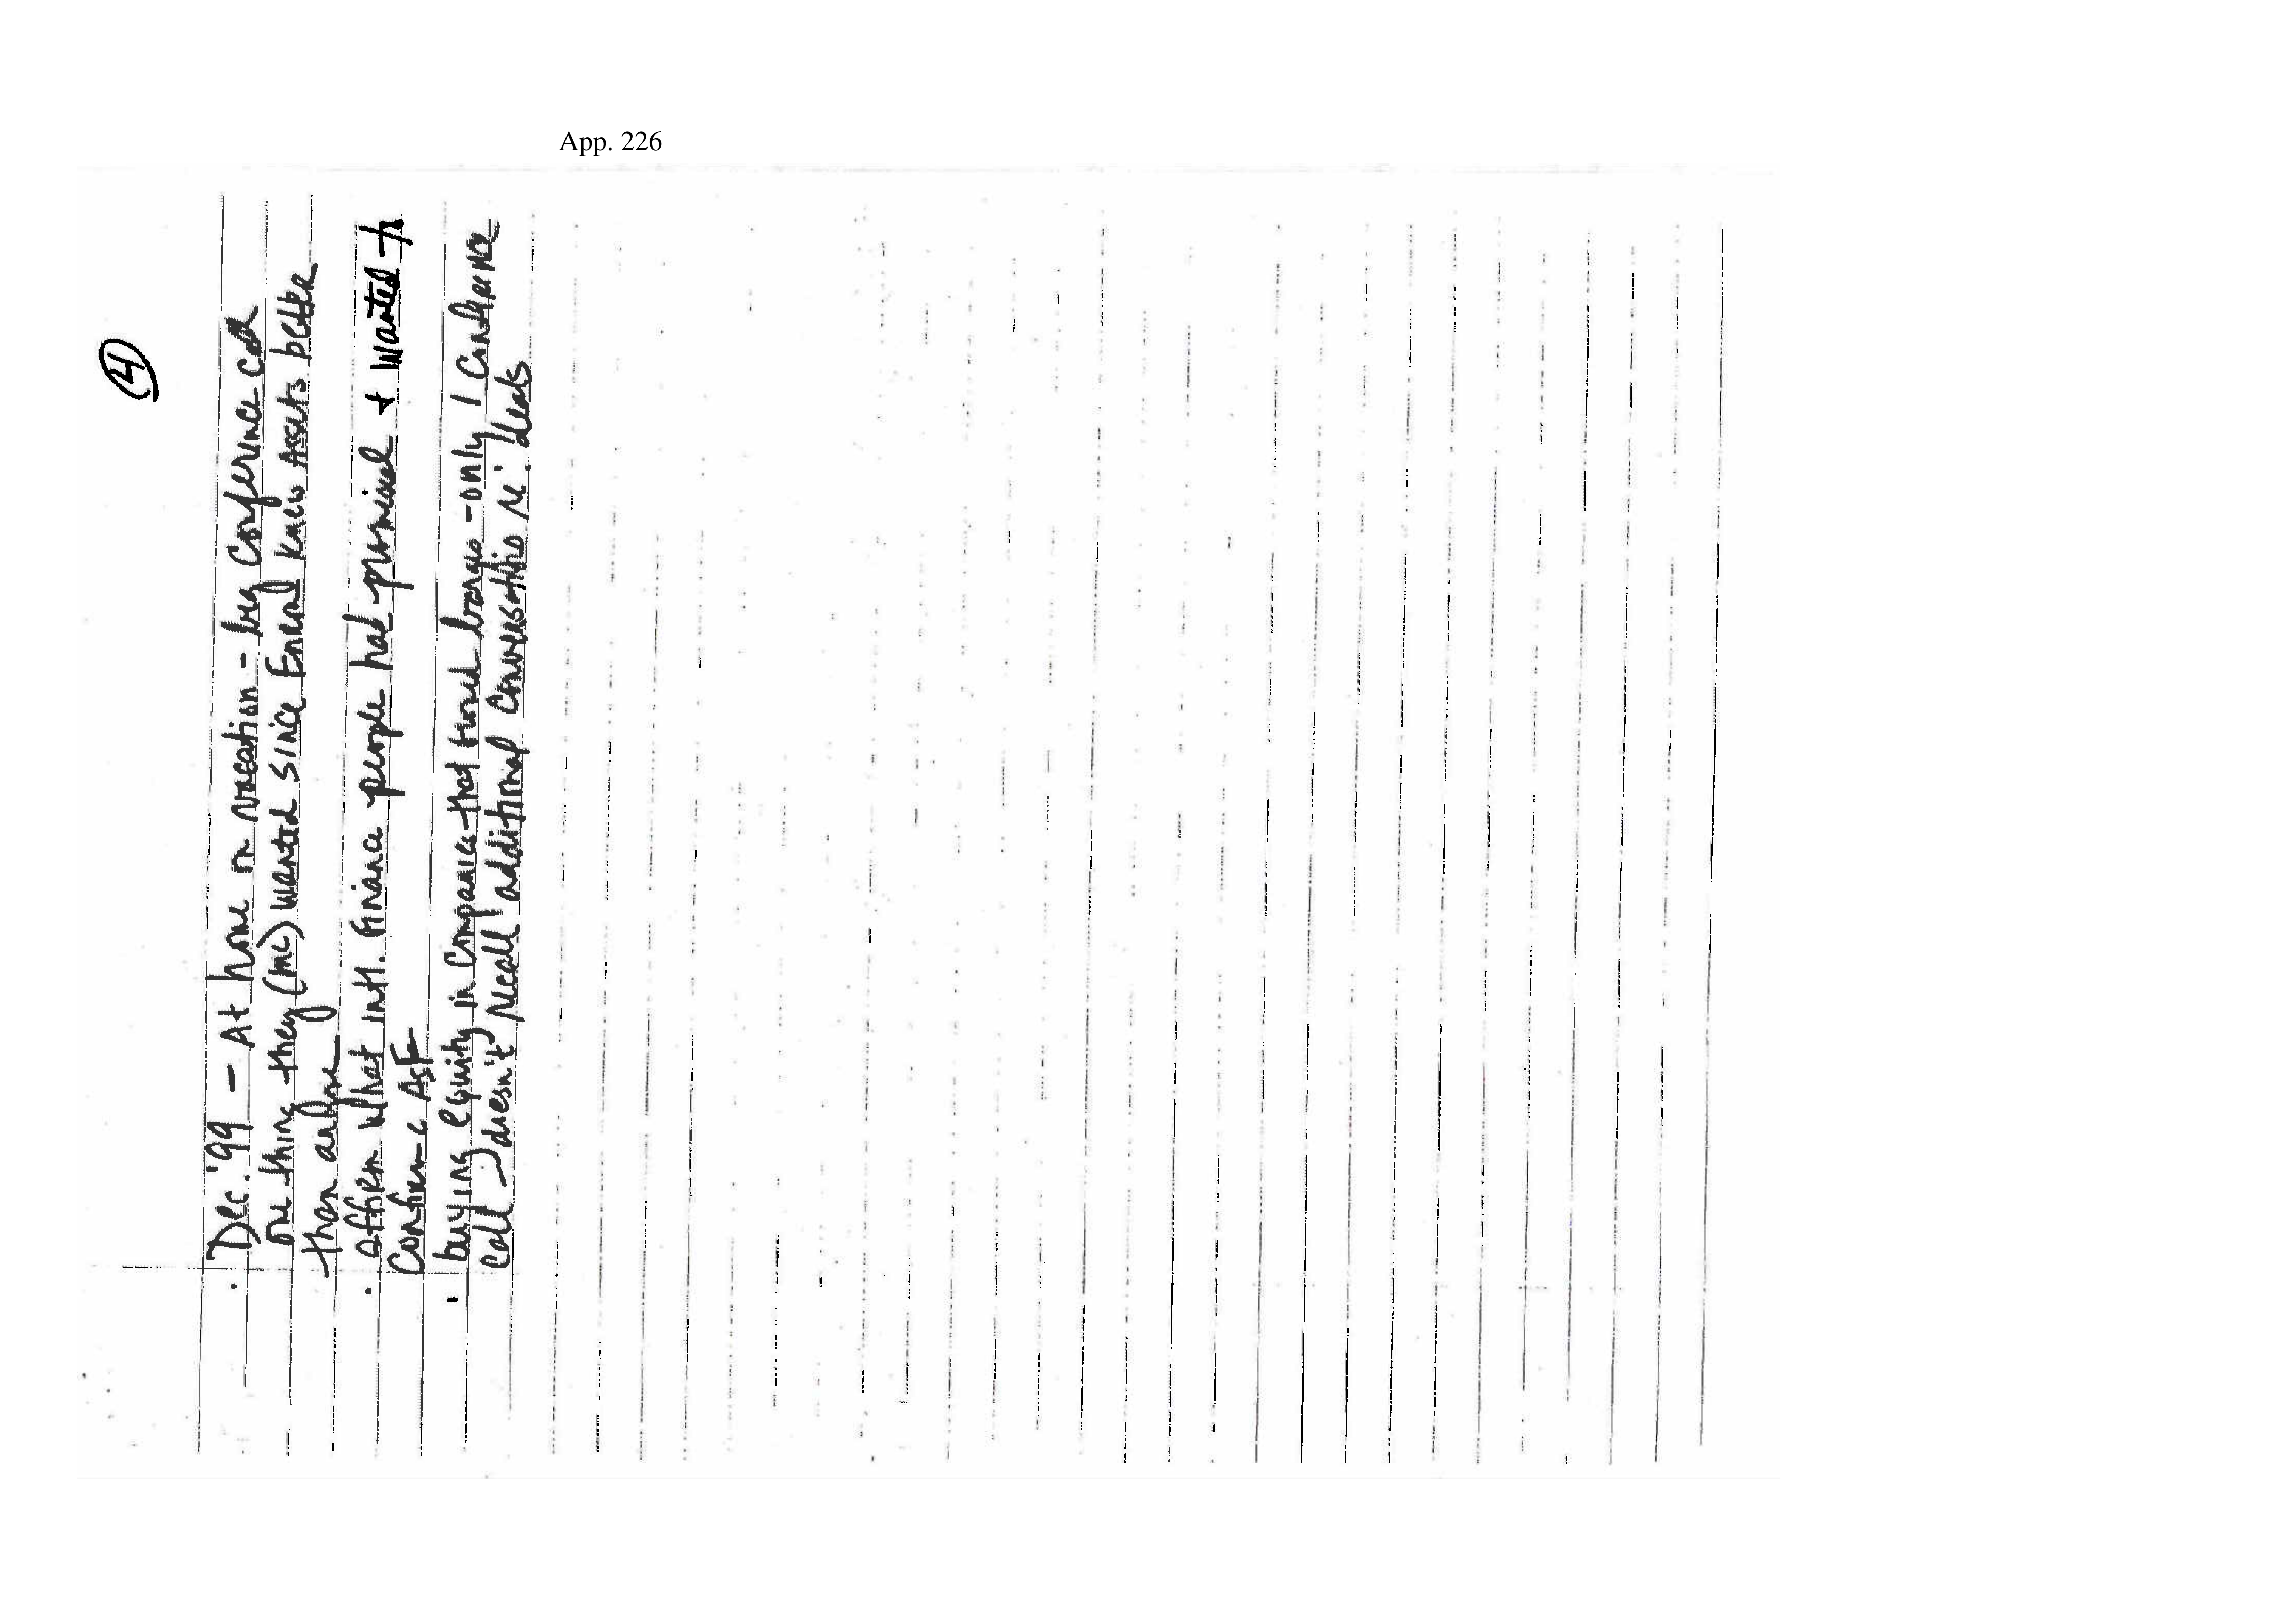 App. 226
④
· Dec. '99 – At home on vacation – big conference call
one thing they (ML) wanted since Enron knew Assets better
than anyone
· affirm what intl. finance people had promised + wanted to
confirm c ASF
· buying equity in companies that owned barges – only 1 conference
call doesn't recall additional conversations re: deals